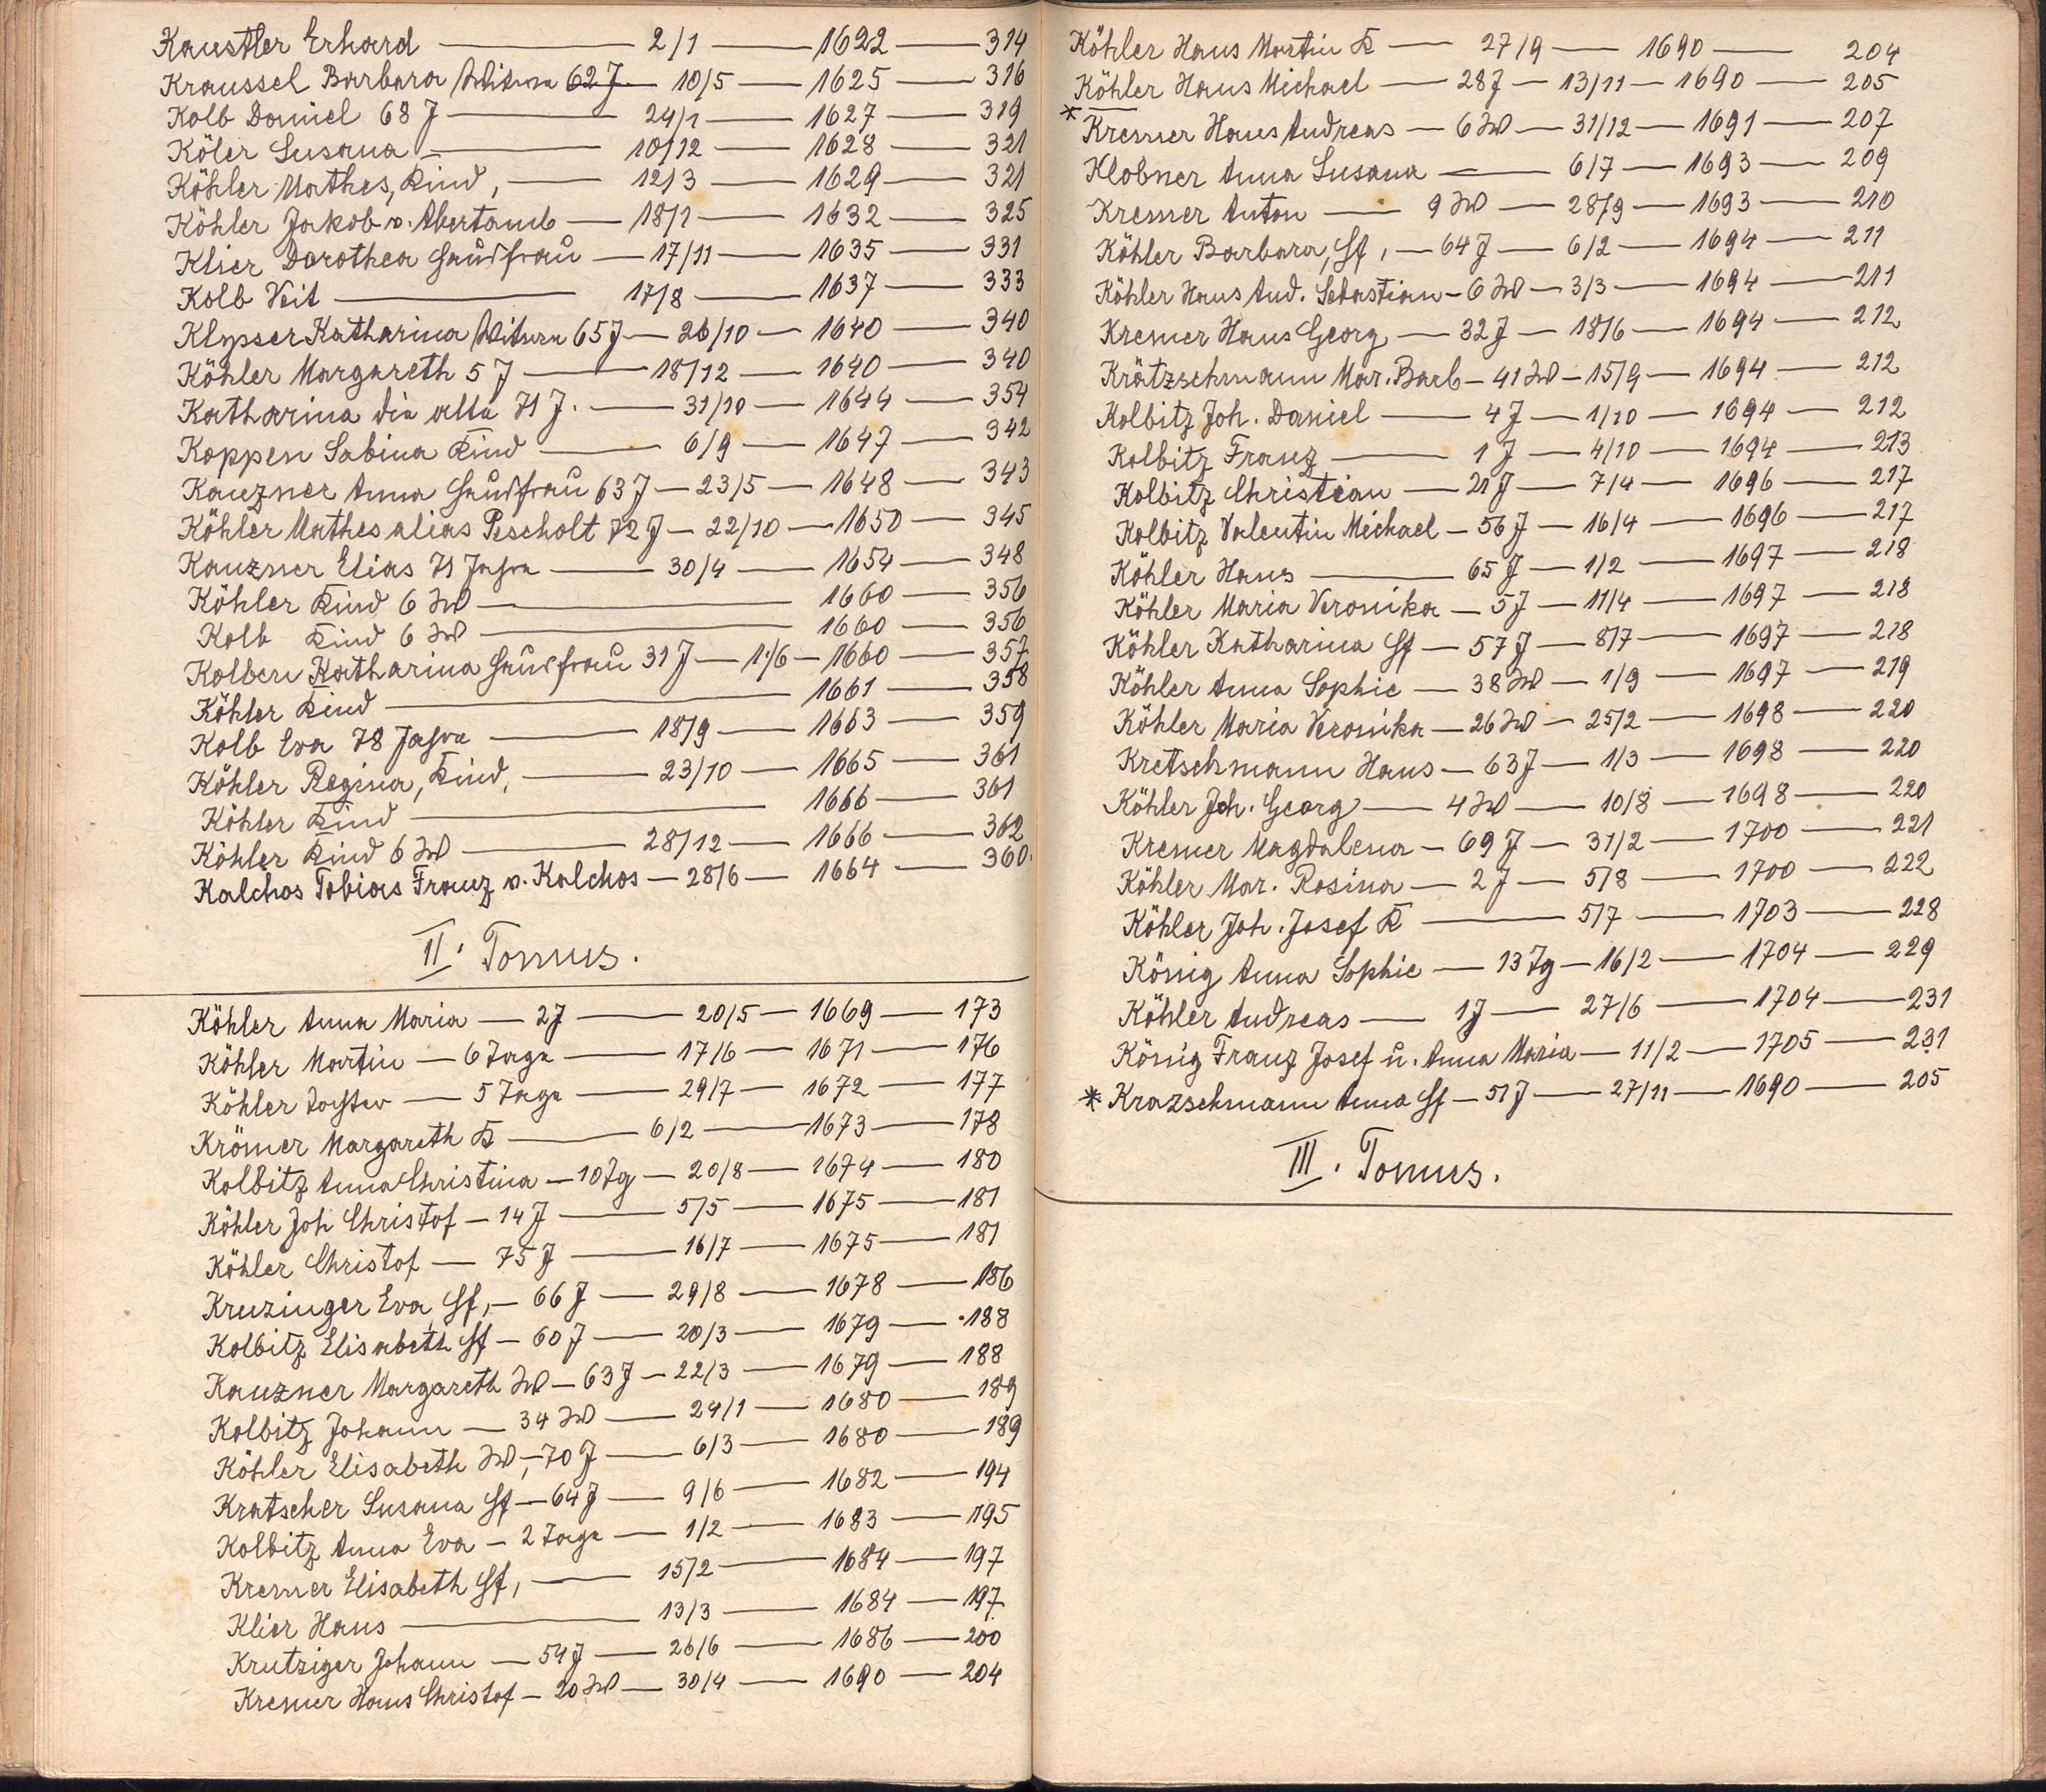 Kaustler Erhard — 2/1 — 1622 — 314
Kraussel Barbara Witwe 62 J — 10/5 — 1625 — 316
Kolb Daniel 68 J — 24/1 — 1627 — 319
Köler Susana — 10/12 — 1628 — 321
Köhler Mathes, Kind, — 12/3 — 1629 — 321
Köhler Jakob v. Abertamb — 18/1 — 1632 — 325
Klier Dorothea Hausfrau — 17/11 — 1635 — 331
Kolb Veit — 17/8 — 1637 — 333
Klysser Katharina Witwe 65 J — 26/10 — 1640 — 340
Köhler Margareth 5 J — 18/12 — 1640 — 340
Katharina die alte 71 J. — 31/10 — 1644 — 354
Koppen Sabina Kind — 6/9 — 1647 — 342
Kauzner Anna Hausfrau 63 J — 23/5 — 1648 — 343
Köhler Mathes alias Pescholt 72 J — 22/10 — 1650 — 345
Kauzner Elias 71 Jahre — 30/4 — 1654 — 348
Köhler Kind 6 W — 1660 — 356
Kolb Kind 6 W — 1660 — 356
Kolben Katharina Hausfrau 31 J — 11/6 — 1660 — 357
Köhler Kind — 1661 — 358
Kolb Eva 78 Jahre — 18/9 — 1663 — 359
Köhler Regina, Kind, — 23/10 — 1665 — 361
Köhler Kind — 1666 — 361
Köhler Kind 6 W — 28/12 — 1666 — 362
Kalchos Tobias Franz v. Kalchos — 28/6 — 1664 — 360.
II. Tomus.
Köhler Anna Maria — 2 J — 20/5 — 1669 — 173
Köhler Martin — 6 Tage — 17/6 — 1671 — 176
Köhler Tochter — 5 Tage — 29/7 — 1672 — 177
Krömer Margareth K — 6/2 — 1673 — 178
Kolbitz Anna Christina — 10 Tg — 20/8 — 1674 — 180
Köhler Joh Christof — 14 J — 5/5 — 1675 — 181
Köhler Christof — 75 J — 16/7 — 1675 — 181
Kruzinger Eva, Hf, — 66 J — 29/8 — 1678 — 186
Kolbitz Elisabeth Hf — 60 J — 20/3 — 1679 — 188
Kauzner Margareth W — 63 J — 22/3 — 1679 — 188
Kolbitz Johann — 34 W — 24/1 — 1680 — 189
Köhler Elisabeth W, — 70 J — 6/3 — 1680 — 189
Kratscher Susana Hf — 64 J — 9/6 — 1682 — 194
Kolbitz Anna Eva — 2 Tage — 1/2 — 1683 — 195
Kremer Elisabeth Hf, — 15/2 — 1684 — 197
Klier Hans — 13/3 — 1684 — 197
Krutziger Johann — 54 J — 26/6 — 1686 — 200
Kremer Hans Christof — 20 W — 30/4 — 1690 — 204
Köhler Hans Martin K — 27/9 — 1690 — 204
Köhler Hans Michael — 28 J — 13/11 — 1690 — 205
* Kremer Hans Andreas — 6 W — 31/12 — 1691 — 207
Klobner Anna Susana — 6/7 — 1693 — 209
Kremer Anton — 9 W — 28/9 — 1693 — 210
Köhler Barbara, Hf, — 64 J — 6/2 — 1694 — 211
Köhler Hans And. Sebastian — 6 W — 3/3 — 1694 — 211
Kremer Hans Georg — 32 J — 18/6 — 1694 — 212
Krätzschmann Mar. Barb — 41 W — 15/9 — 1694 — 212
Kolbitz Joh. Daniel — 4 J — 1/10 — 1694 — 212
Kolbitz Franz — 1 J — 4/10 — 1694 — 213
Kolbitz Christian — 21 J — 7/4 — 1696 — 217
Kolbitz Valentin Michael — 56 J — 16/4 — 1696 — 217
Köhler Hans — 65 J — 1/2 — 1697 — 218
Köhler Maria Veronika — 5 J — 11/4 — 1697 — 218
Köhler Katharina Hf — 57 J — 8/7 — 1697 — 218
Köhler Anna Sophie — 38 W — 1/9 — 1697 — 219
Köhler Maria Veronika — 26 W — 25/2 — 1698 — 220
Kretschmann Hans — 63 J — 1/3 — 1698 — 220
Köhler Joh. Georg — 4 W — 10/8 — 1698 — 220
Kremer Magdalena — 69 J — 31/2 — 1700 — 221
Köhler Mar. Rosina — 2 J — 5/8 — 1700 — 222
Köhler Joh. Josef K — 5/7 — 1703 — 228
König Anna Sophie — 13 Tg — 16/2 — 1704 — 229
Köhler Andreas — 1 J — 27/6 — 1704 — 231
König Franz Josef u. Anna Maria — 11/2 — 1705 — 231
* Krazschmann Anna Hf — 51 J — 27/11 — 1690 — 205
III. Tomus.